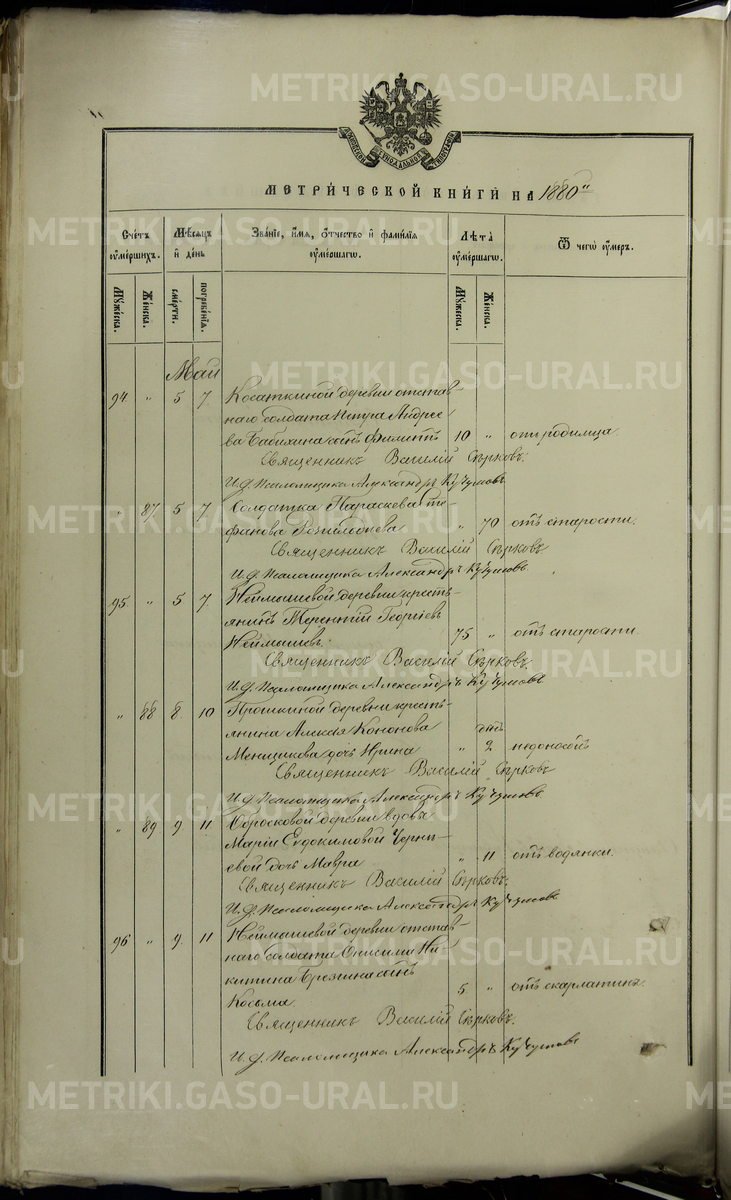 METRIKI.GASO-URAL.RU
МОСКОВСКОЙ СѴНОДАЛЬНОЙ ТИПОГРАФІИ
МЕТРИ́ЧЕСКОЙ КНИ́ГИ НА 1880"
Сче́тъ оуме́ршихъ.
Мѣ́сяцъ и де́нь
Зва́нїе, и́мѧ, о́тчество и фами́лїѧ оуме́ршагѡ.
Лѣта̀ оуме́ршагѡ.
Ѿ чегѡ̀ оу́меръ.
Мꙋ́жеска.
Же́нска.
сме́рти.
погребе́нїѧ.
Мꙋ́жеска.
Же́нска.
Май
94 " 5 7 Косаткиной деревни отстав-
наго солдата Петра Андрее
ва Бабихина сынъ Филиппъ 10 " отъ родимца.
Священникъ Василій Сѣрковъ.
И. д. Псаломщика Александръ Кучумовъ
" 87 5 7 Солдатка Параскева Сте
фанова " 70 отъ старости.
Священникъ Василій Сѣрковъ
И. д. Псаломщика Александръ Кучумовъ.
95 " 5 7. Неймышевой деревни кресть-
янинъ Терентій Георгіевъ
Неймышевъ. 75 " отъ старости
Священникъ Василій Сѣрковъ.
И. д. Псаломщика Александръ Кучумовъ
" 88 8. 10 Прошкиной деревни кресть-
янина Алексія Кононова
Менщикова дочь Ирина " 2
Священникъ Василій Сѣрковъ
И. д. Псаломщика Александръ Кучумовъ.
" 89 9 11 деревни вдовы
Маріи Евдокимовой Черны-
евой дочь Мавра " 11 отъ водянки.
Священникъ Василій Сѣрковъ.
И. д. Псаломщика Александръ Кучумовъ
96 " 9. 11 Неймышевой деревни отстав-
наго солдата Онисима Ни-
китина Брезгина сынъ
Косьма 5. " отъ скарлатины.
Священникъ Василій Сѣрковъ.
И. д. Псаломщика Александръ Кучумовъ